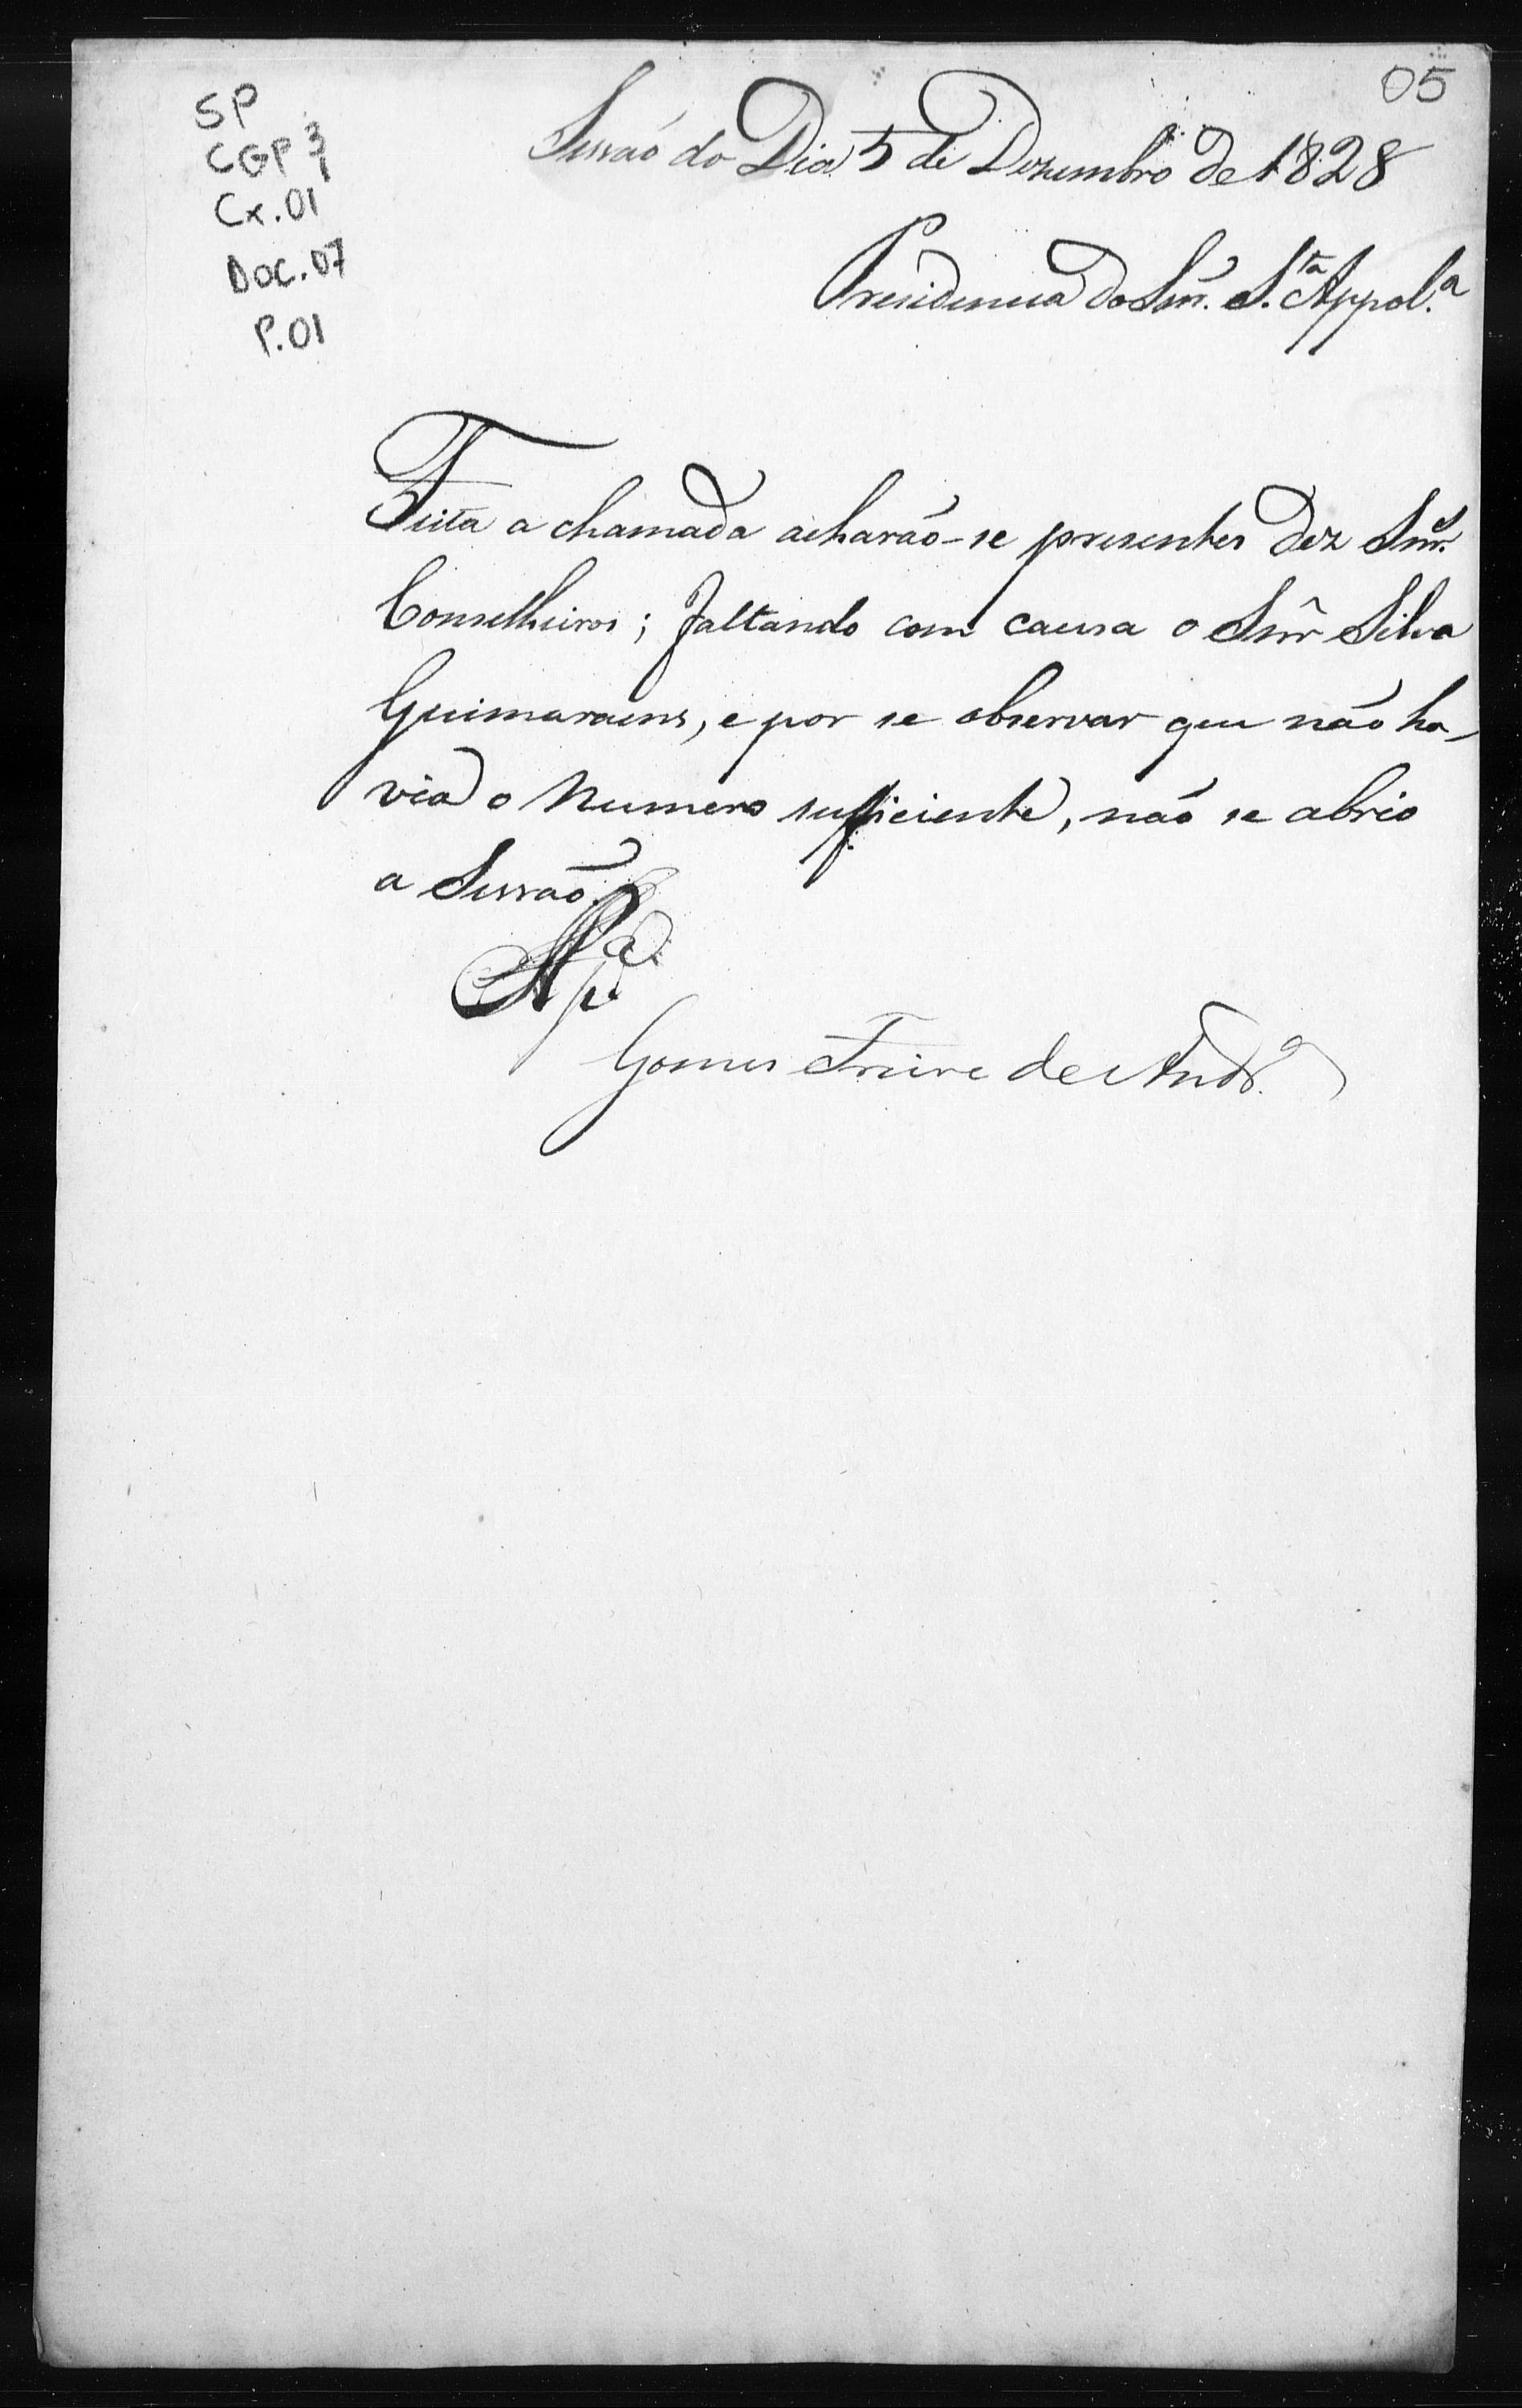 05
SP
CGP 3
1
Cx. 01
Doc. 07
P. 01
Sessaõ do Dia 5 de Dezembro de 1828
Presidencia do Snr. S.ta Appol.a
Feita a chamada acharaõ-se presentes dez Snr.s
Conselheiros; faltando com causa o Snr̃ Silva
Guimaraens, e por se observar que naõ ha-
via o Numero sufficiente, naõ se abrio
a Sessaõ.
Gomes Freire de Andr.e